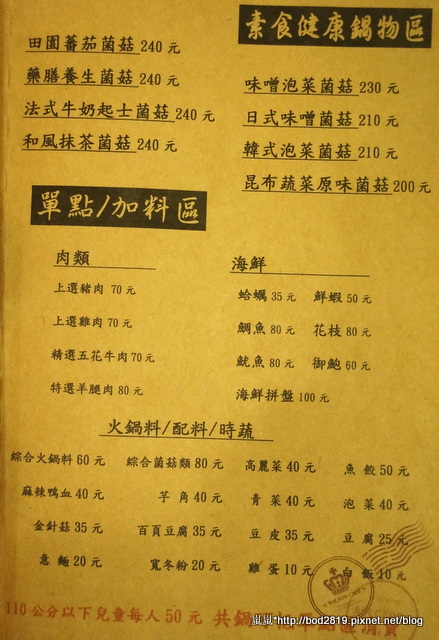 素食健康鍋物區
田園蕃茄菌菇 240 元
藥膳養生菌菇 240 元
法式牛奶起士菌菇 240 元
和風抹茶菌菇 240 元
味噌泡菜菌菇 230 元
日式味噌菌菇 210 元
韓式泡菜菌菇 210 元
昆布蔬菜原味菌菇 200 元
單點/加料區
肉類
上選豬肉 70 元
上選雞肉 70 元
精選五花牛肉 70 元
特選羊腿肉 80 元
海鮮
蛤蠣 35 元 鮮蝦 50 元
鯛魚 80 元 花枝 80 元
魷魚 80 元 御鮑 60 元
海鮮拼盤 100 元
火鍋料/配料/時蔬
綜合火鍋料 60 元 綜合菌菇類 80 元 高麗菜 40 元 魚餃 50 元
麻辣鴨血 40 元 芋角 40 元 青菜 40 元 泡菜 40 元
金針菇 35 元 百頁豆腐 35 元 豆皮 35 元 豆腐 25 元
意麵 20 元 寬冬粉 20 元 雞蛋 10 元 白飯 10 元
110 公分以下兒童每人 50 元 共鍋
"http://bod2819.pixnet.net/blog